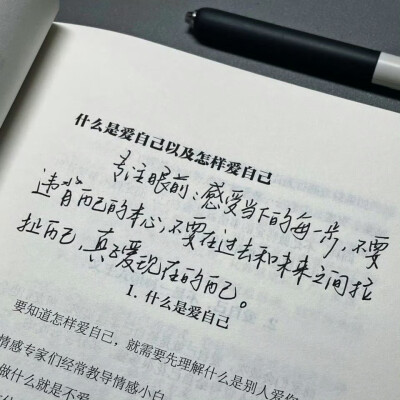 什么是爱自己以及怎样爱自己
专注眼前:感受当下的每一步,不要
违背自己的本心,不要在过去和未来之间拉
扯自己,真正爱现在的自己。
1. 什么是爱自己
要知道怎样爱自己,就需要先理解什么是别人爱你
情感专家们经常教导情感小白
做什么就是不爱